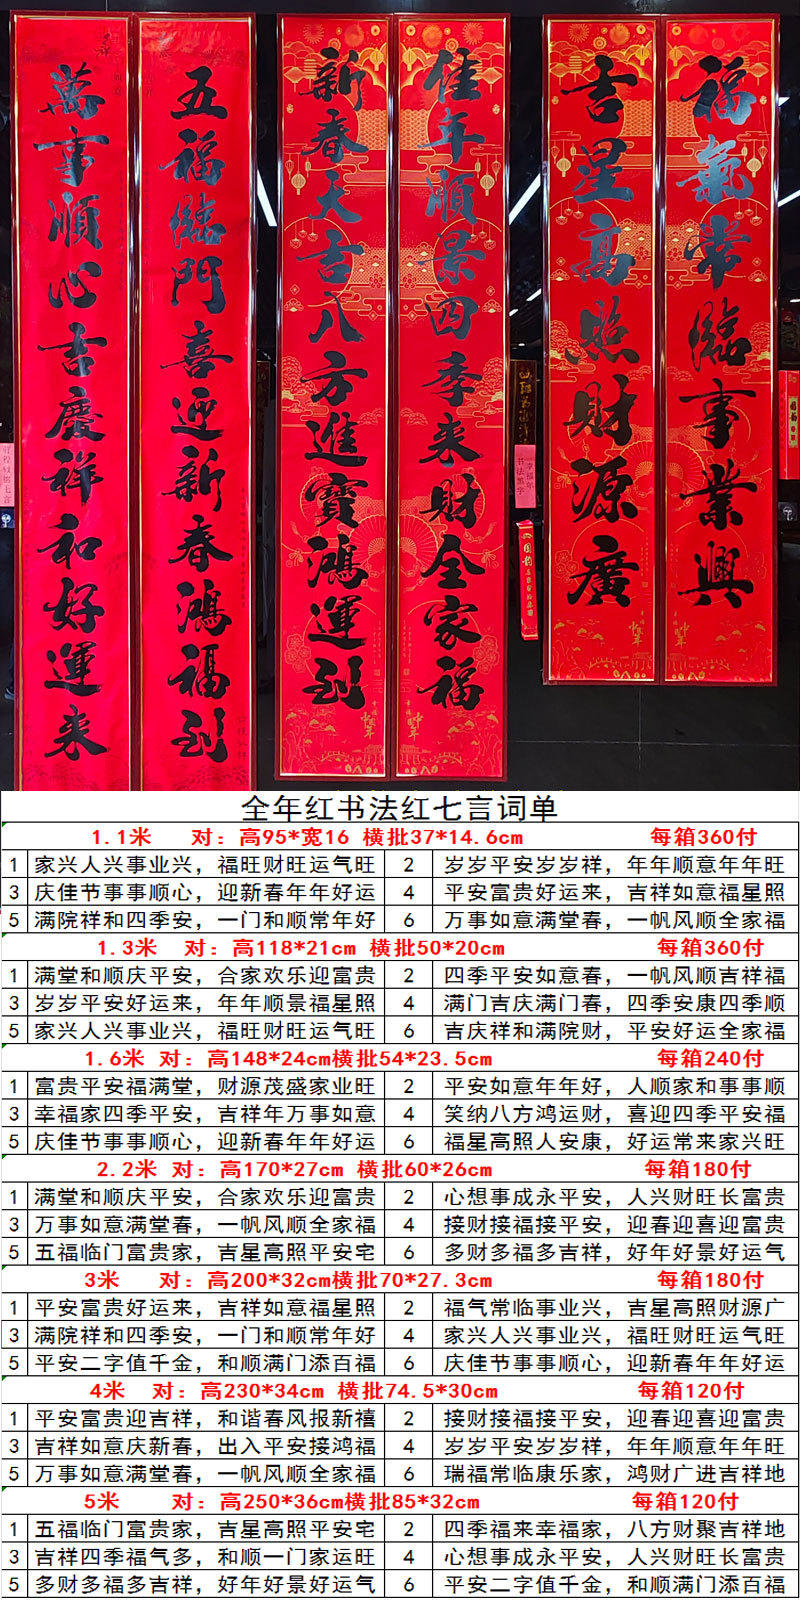 萬事順心吉慶祥和好運来
五福臨門喜迎新春鴻福到
新春大吉八方進寶鴻運到
佳年順景四季来財全家福
吉星高照財源廣
福氣常臨事業興
全年红书法红七言词单
1.1米 对：高95*宽16 横批37*14.6cm 每箱360付
1 家兴人兴事业兴，福旺财旺运气旺 2 岁岁平安岁岁祥，年年顺意年年旺
3 庆佳节事事顺心，迎新春年年好运 4 平安富贵好运来，吉祥如意福星照
5 满院祥和四季安，一门和顺常年好 6 万事如意满堂春，一帆风顺全家福
1.3米 对：高118*21cm 横批50*20cm 每箱360付
1 满堂和顺庆平安，合家欢乐迎富贵 2 四季平安如意春，一帆风顺吉祥福
3 岁岁平安好运来，年年顺景福星照 4 满门吉庆满门春，四季安康四季顺
5 家兴人兴事业兴，福旺财旺运气旺 6 吉庆祥和满院财，平安好运全家福
1.6米 对：高148*24cm横批54*23.5cm 每箱240付
1 富贵平安福满堂，财源茂盛家业旺 2 平安如意年年好，人顺家和事事顺
3 幸福家四季平安，吉祥年万事如意 4 笑纳八方鸿运财，喜迎四季平安福
5 庆佳节事事顺心，迎新春年年好运 6 福星高照人安康，好运常来家兴旺
2.2米 对：高170*27cm 横批60*26cm 每箱180付
1 满堂和顺庆平安，合家欢乐迎富贵 2 心想事成永平安，人兴财旺长富贵
3 万事如意满堂春，一帆风顺全家福 4 接财接福接平安，迎春迎喜迎富贵
5 五福临门富贵家，吉星高照平安宅 6 多财多福多吉祥，好年好景好运气
3米 对：高200*32cm横批70*27.3cm 每箱180付
1 平安富贵好运来，吉祥如意福星照 2 福气常临事业兴，吉星高照财源广
3 满院祥和四季安，一门和顺常年好 4 家兴人兴事业兴，福旺财旺运气旺
5 平安二字值千金，和顺满门添百福 6 庆佳节事事顺心，迎新春年年好运
4米 对：高230*34cm 横批74.5*30cm 每箱120付
1 平安富贵迎吉祥，和谐春风报新禧 2 接财接福接平安，迎春迎喜迎富贵
3 吉祥如意庆新春，出入平安接鸿福 4 岁岁平安岁岁祥，年年顺意年年旺
5 万事如意满堂春，一帆风顺全家福 6 瑞福常临康乐家，鸿财广进吉祥地
5米 对：高250*36cm横批85*32cm 每箱120付
1 五福临门富贵家，吉星高照平安宅 2 四季福来幸福家，八方财聚吉祥地
3 吉祥四季福气多，和顺一门家运旺 4 心想事成永平安，人兴财旺长富贵
5 多财多福多吉祥，好年好景好运气 6 平安二字值千金，和顺满门添百福